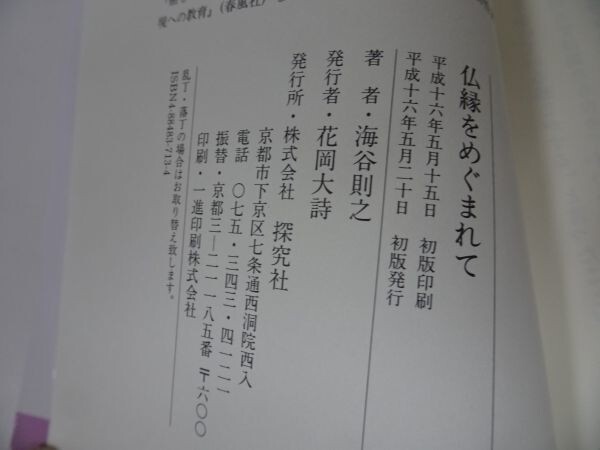 境への教育』（春風社）
仏縁をめぐまれて
平成十六年五月十五日　初版印刷
平成十六年五月二十日　初版発行
著　者・海谷則之
発行者・花岡大詩
発行所・株式会社　探究社
京都市下京区七条通西洞院西入
電話　〇七五・三四三・四一二一
振替・京都三―二一一八五番　〒六〇〇
印刷・一進印刷株式会社
乱丁・落丁の場合はお取り替え致します。
ISBN4-88483-713-4